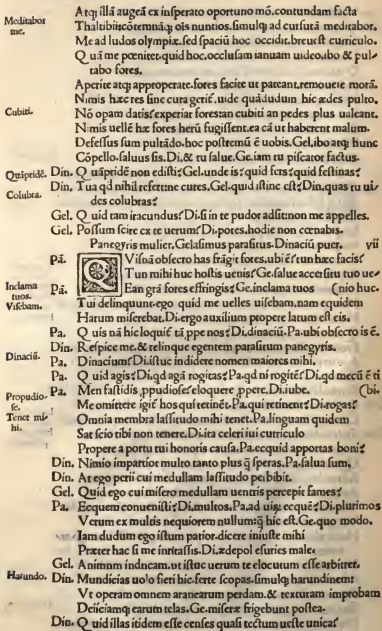 Meditabor me.
Cubiti.
Quáprïdē.
Colubra.
Inclama tuos.
Visebam.
Dinaciū.
Propudiose.
Tenet mihi.
Harundo.
Atq; illā augeā ex insperato oportuno mō. contundam facta
Thaltibii
Me ad ludos olympiæ. sed spaciū hoc occidit. breue st curriculo.
Q uā me pœnitet. quid hoc. occlusam ianuam uideo. ibo & pultabo fores.
Aperite atq; approperate. fores facite ut pateant. remouete morā.
Nimis hæc res sine cura gerit. uide
Nō opam datis? experiar fores an cubiti an pedes plus ualeant.
Nimis uellē hæ fores herū fugissent. ea cā ut haberent malum.
Defessus sum pultādo. hoc postremū ē uobis. Gel. ibo atq; hunc
Cōpello. saluus sis. Di. & tu salue. Ge. iam tu piscator factus.
Din. Tua qd nihil refert ne cures. Gel. quid istinc est? Din. quas tu uides colubras?
Gel. Q uid tam iracundus? Di. si in te pudor adsit: non me appelles.
Gel. Possum scire ex te uerum? Di. potes. hodie non cœnabis.
Panegyris mulier. Gelasimus parasitus. Dinaciū puer. vii
Pā. Q Visnā obsecro has frāgit fores. ubi ē? tun hæc facis?
Tun mihi huc hostis uenis? Ge. salue accersitu tuo uenio huc.
Pā. Ean grā fores effringis? Ge. inclama tuos
Tui delinquunt. ego quid me uelles uisebam. nam equidem
Harum miserebat. Di. ergo auxilium propere latum est eis.
Pa. Q uis nā hic loquit tā ppe nos? Di. dinaciū. Pa. ubi obsecro is ē.
Din. Respice me. & relinque egentem parasitum panegyris.
Pa. Dinacium? Di. istuc indidere nomen maiores mihi.
Pa. Q uid agis? Di. qd agā rogitas? Pa. qd ni rogitē? Di. qd mecū ē tibi.
Pa. Men fastidis ppudiose? eloquere ppere. Di. iube.
Me omittere igit hos qui retinēt. Pa. qui retinent? Di. rogas?
Omnia membra lassitudo mihi tenet. Pa. linguam quidem
Sat scio tibi non tenere. Di. ita celeri iui curriculo
Propere a portu tui honoris causa. Pa. ecquid apportas boni?
Din. Nimio impartior multo tanto plus q̄ speras. Pa. salua sum.
Din. At ego perii cui medullam lassitudo perbibit.
Gel. Quid ego cui misero medullam uentris percepit fames?
Pa. Ecquem conuenisti? Di. multos. Pa. ad uiȝ ecquē? Di. plurimos
Verum ex multis nequiorem nullum q̄ hic est. Ge. quo modo.
Iam dudum ego istum patior. dicere iniuste mihi
Præter hac si me irritassis. Di. ædepol esuries male.
Gel. Animum inducam. ut istuc uerum te elocutum esse arbitrer.
Din. Mundicias uolo fieri hic. ferte scopas. simulq; harundinem:
Vt operam omnem aranearum perdam. & texturam improbam
Deiiciamq; earum telas. Ge. miseræ frigebunt postea.
Din. Q uid illas itidem esse censes quasi te cum ueste unica?